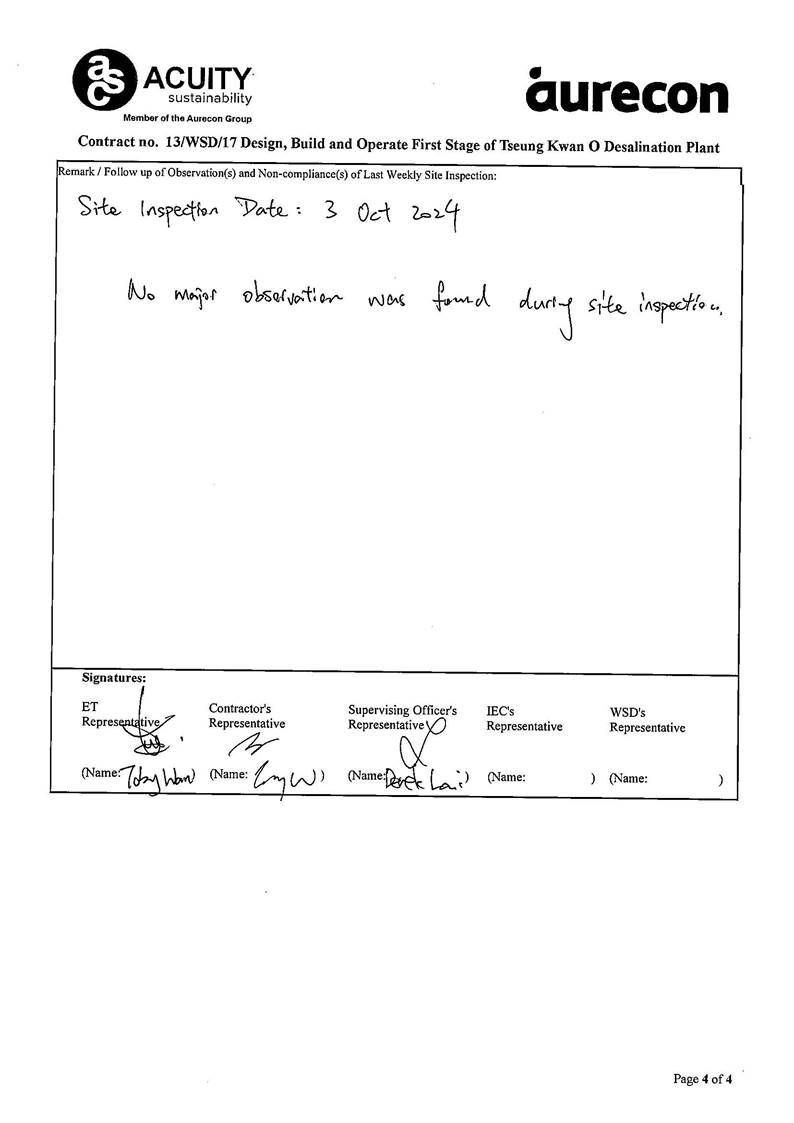 asc ACUITY
sustainability
Member of the Aurecon Group
aurecon
Contract no. 13/WSD/17 Design, Build and Operate First Stage of Tseung Kwan O Desalination Plant
Remark / Follow up of Observation(s) and Non-compliance(s) of Last Weekly Site Inspection:
Site Inspection Date: 3 Oct 2024
No major observation was found during site inspection.
Signatures:
ET Representative
Contractor's Representative
Supervising Officer's Representative
IEC's Representative
WSD's Representative
(Name: Toby Wan)
(Name: )
(Name: Derek Lai)
(Name: )
(Name: )
Page 4 of 4